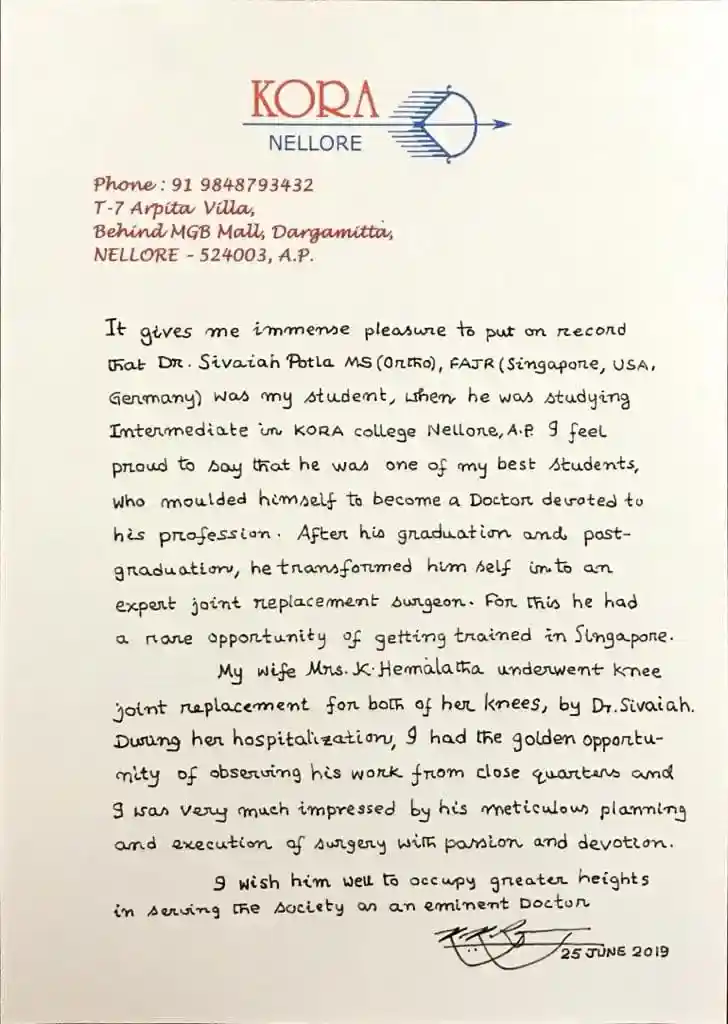 KORA
NELLORE
Phone : 91 9848793432
T-7 Arpita Villa,
Behind MGB Mall, Dargamitta,
NELLORE - 524003, A.P.
It gives me immense pleasure to put on record
that Dr. Sivaiah Potla MS (Ortho), FAJR (Singapore, USA,
Germany) was my student, when he was studying
Intermediate in KORA college Nellore, A.P. I feel
proud to say that he was one of my best students,
who moulded himself to become a Doctor devoted to
his profession. After his graduation and post-
graduation, he transformed him self into an
expert joint replacement surgeon. For this he had
a rare opportunity of getting trained in Singapore.
My wife Mrs. K. Hemalatha underwent knee
joint replacement for both of her knees, by Dr. Sivaiah.
During her hospitalization, I had the golden opportu-
nity of observing his work from close quarters and
I was very much impressed by his meticulous planning
and execution of surgery with passion and devotion.
I wish him well to occupy greater heights
in serving the society as an eminent Doctor
25 JUNE 2019